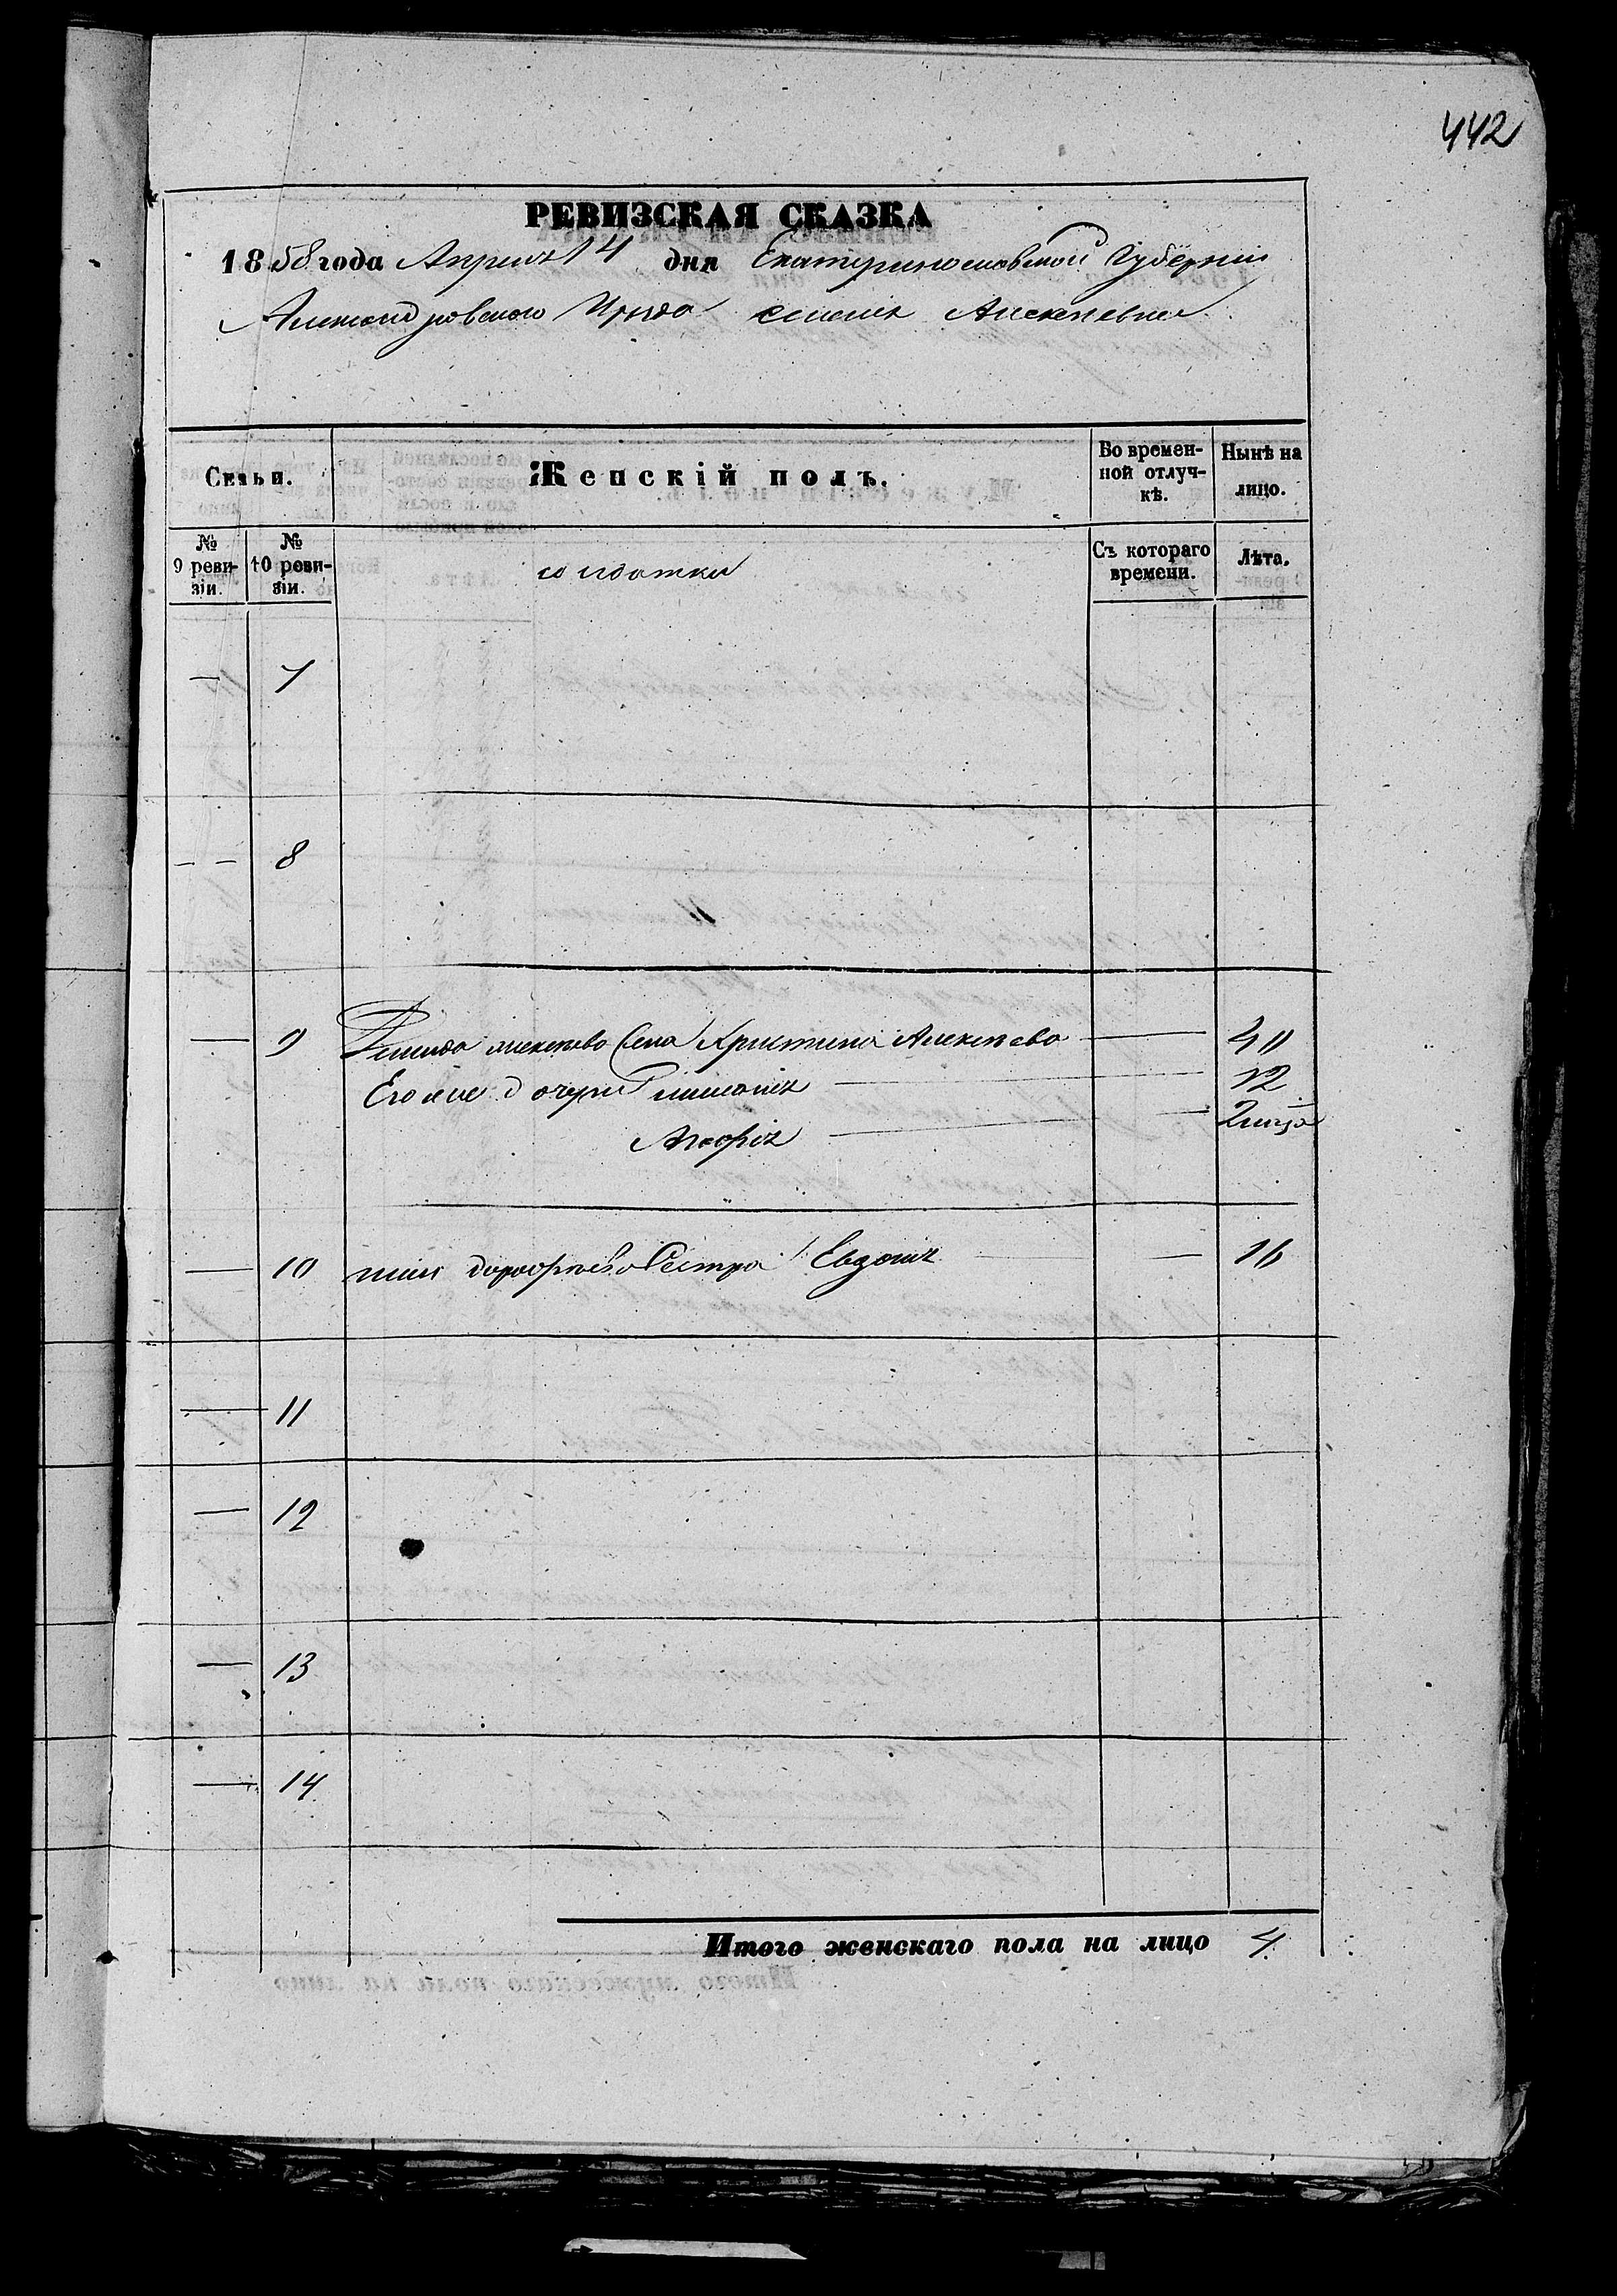 442
РЕВИЗСКАЯ СКАЗКА
1858 года Апреля 14 дня Екатеринославской Губернии
Александровского Уезда селения Алексеевки
Семьи.
Женскій полъ.
Во времен-
ной отлуч-
кѣ.
Нынѣ на
лицо.
№
9 реви-
зіи.
№
10 реви-
зіи.
солдатки
Съ котораго
времени.
Лѣта.
— 7
— — 8
— 9 алексеева Христина Алексеева — 40
Его же дочери — 12
—
— 10 Сестра Евдокия — 16
— 11
— 12
— 13
— 14
Итого женскаго пола на лицо 4